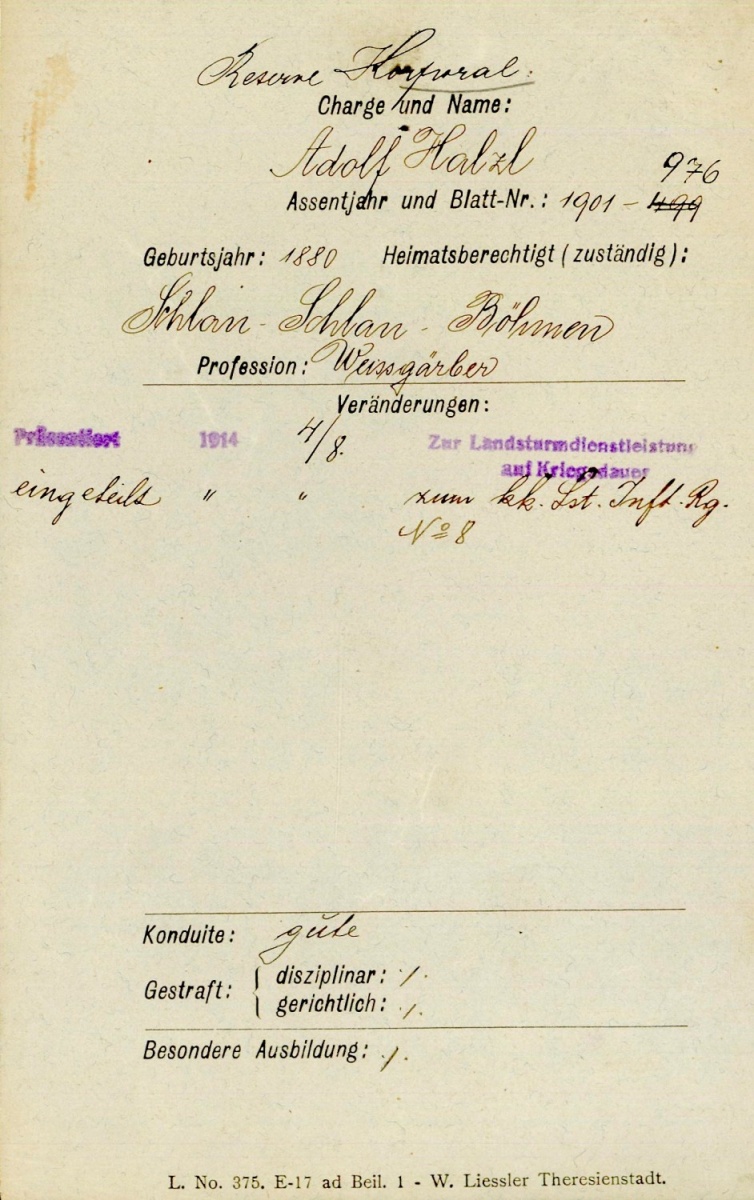 Reserve Korporal.
Charge und Name:
Adolf Halzl
976
Assentjahr und Blatt-Nr.: 1901 - 499
Geburtsjahr: 1880 Heimatsberechtigt (zuständig):
Schlan - Schlan - Böhmen
Profession: Weissgärber
Veränderungen:
Präsentiert 1914 4/8. Zur Landsturmdienstleistung
auf Kriegsdauer
eingeteilt " " zum kk. Lst. Inft. Rg.
No 8
Konduite: gute
Gestraft: { disziplinar: ./.
gerichtlich: ./.
Besondere Ausbildung: ./.
L. No. 375. E-17 ad Beil. 1 - W. Liessler Theresienstadt.